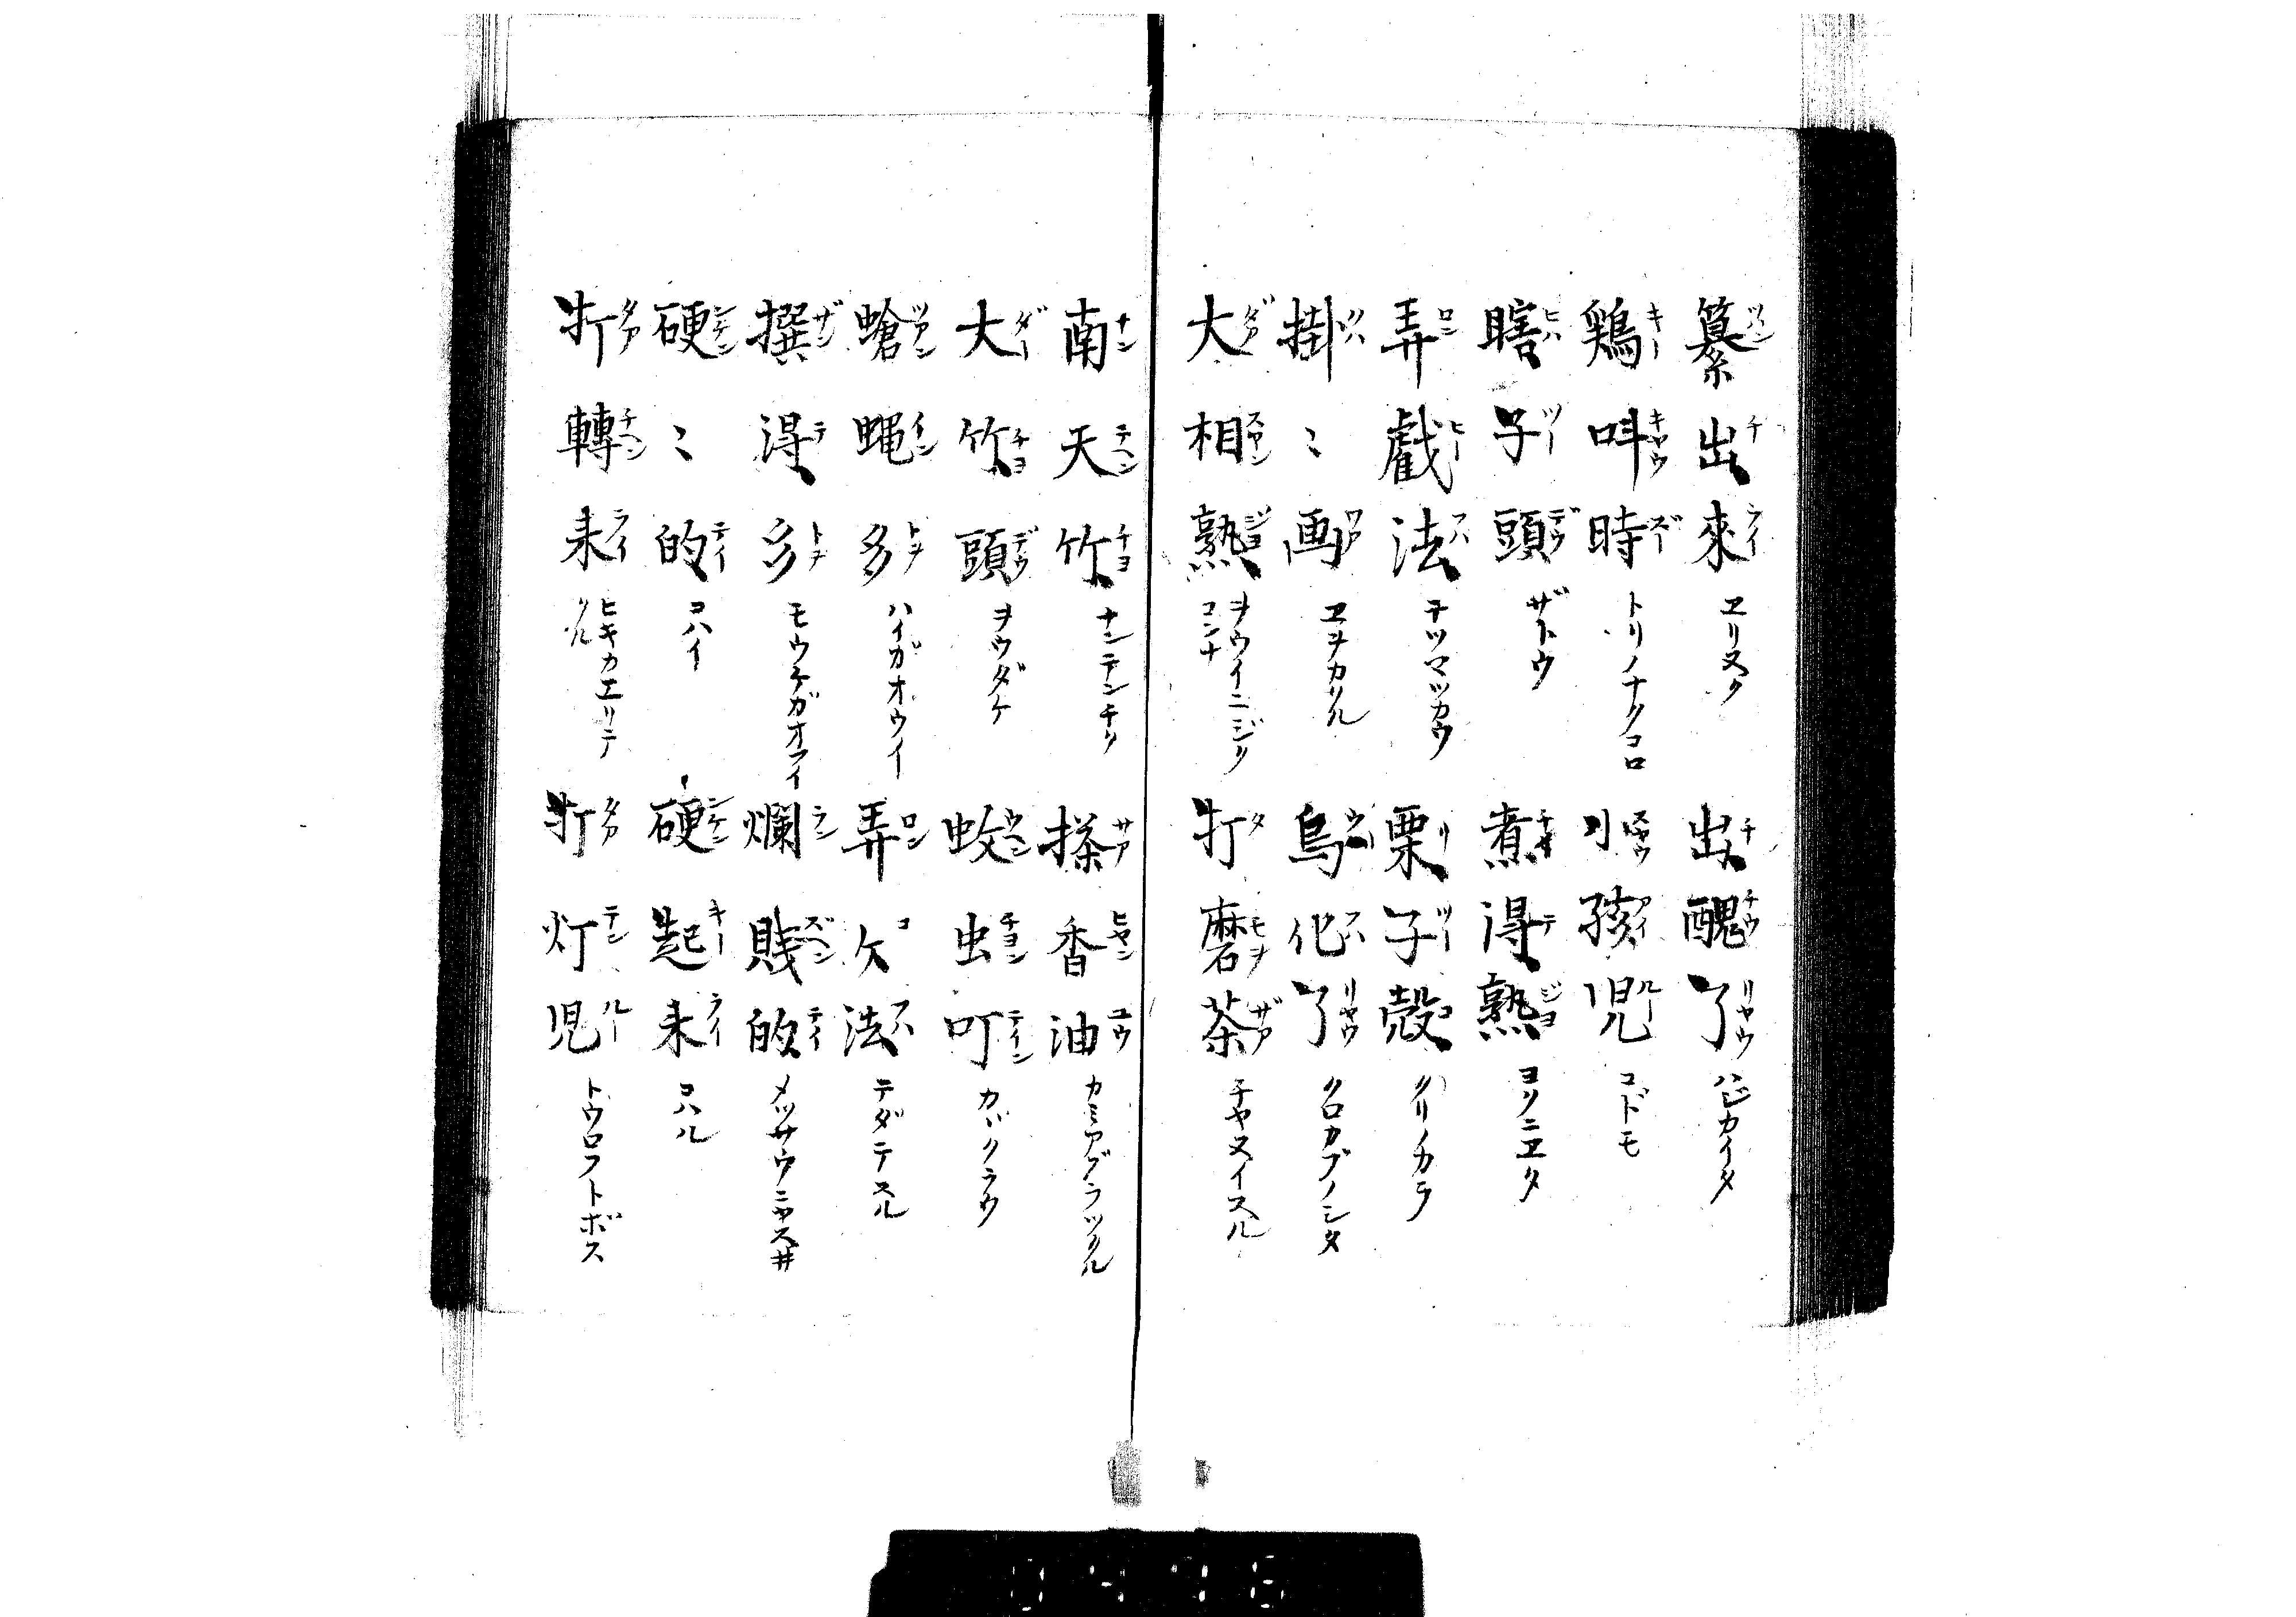 纂出來 ヱリヌク 出醜了 ハヂカイタ
鶏呌時 トリノナクコロ 小孩児 コドモ
瞎子頭 ザトウ 煮得熟 ヨクニヱタ
弄戯法 テツマツカウ 栗子殻 クリノカラ
掛〻画 ヱヲカクル 烏化了 クロカブノシタ
大相熟 ヲウイニジクコンナ 打磨茶 チヤヌイスル
南天竹 ナンテンチク 搽香油 カミアグラツクル
大竹頭 ヲウダケ 蚊虫叮 カヾクラウ
蜍蝿多 ハイガオヽウイ 弄ケ法 テダテスル
撰得多 モウケガオヽイ 爛賤的 メツサウニヤスヰ
硬〻的 コハイ 硬起来 コハル
打轉来 ヒキカエリテクル 打灯児 トウロフトボス